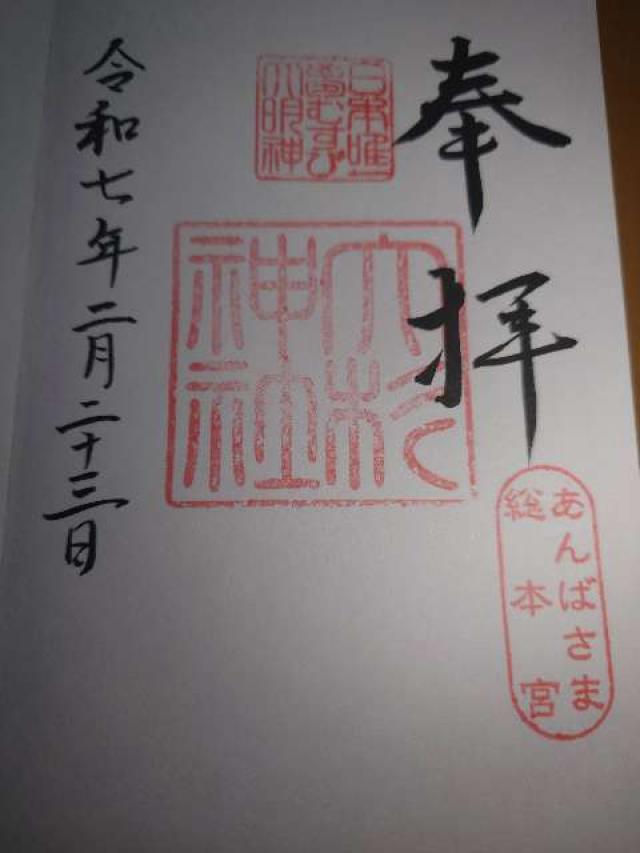 奉拝
日本唯一
夢むすび
大明神
大杉
神社
あんばさま
総本宮
令和七年二月二十三日